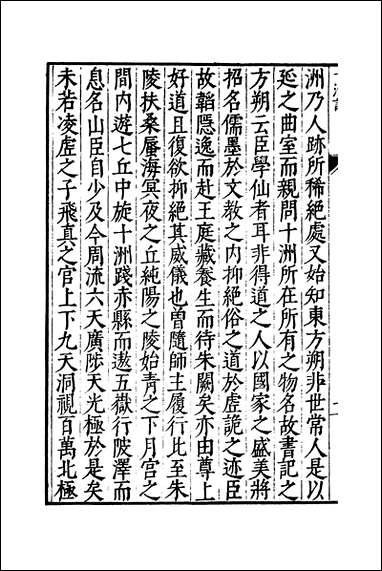 洲乃人跡所稀絶處又始知東方朔非世常人是以
延之曲室而親問十洲所在所有之物名故書記之
方朔云臣學仙者耳非得道之人以國家之盛美將
招名儒墨於文教之内抑絶俗之道於虛詭之迹臣
故韜隱逸而赴王庭藏養生而待朱闕矣亦由尊上
好道且復欲抑絶其威儀也曽隨師主履行比至朱
陵扶桑蜃海冥夜之丘純陽之陵始青之下月宫之
間内遊七丘中旋十洲踐赤縣而遨五嶽行陂澤而
息名山臣自少及今周流六天廣陟天光極於是矣
未若凌虛之子飛真之官上下九天洞視百萬北極